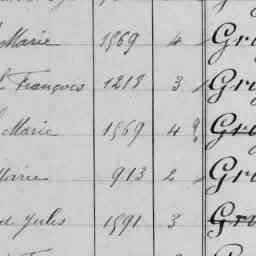 Marie 1569 4 Gr
François 1218 3 Gr
Marie 1569 4 ? Gr
Marie 913 2 Gr
Jules 1591 3 Gr